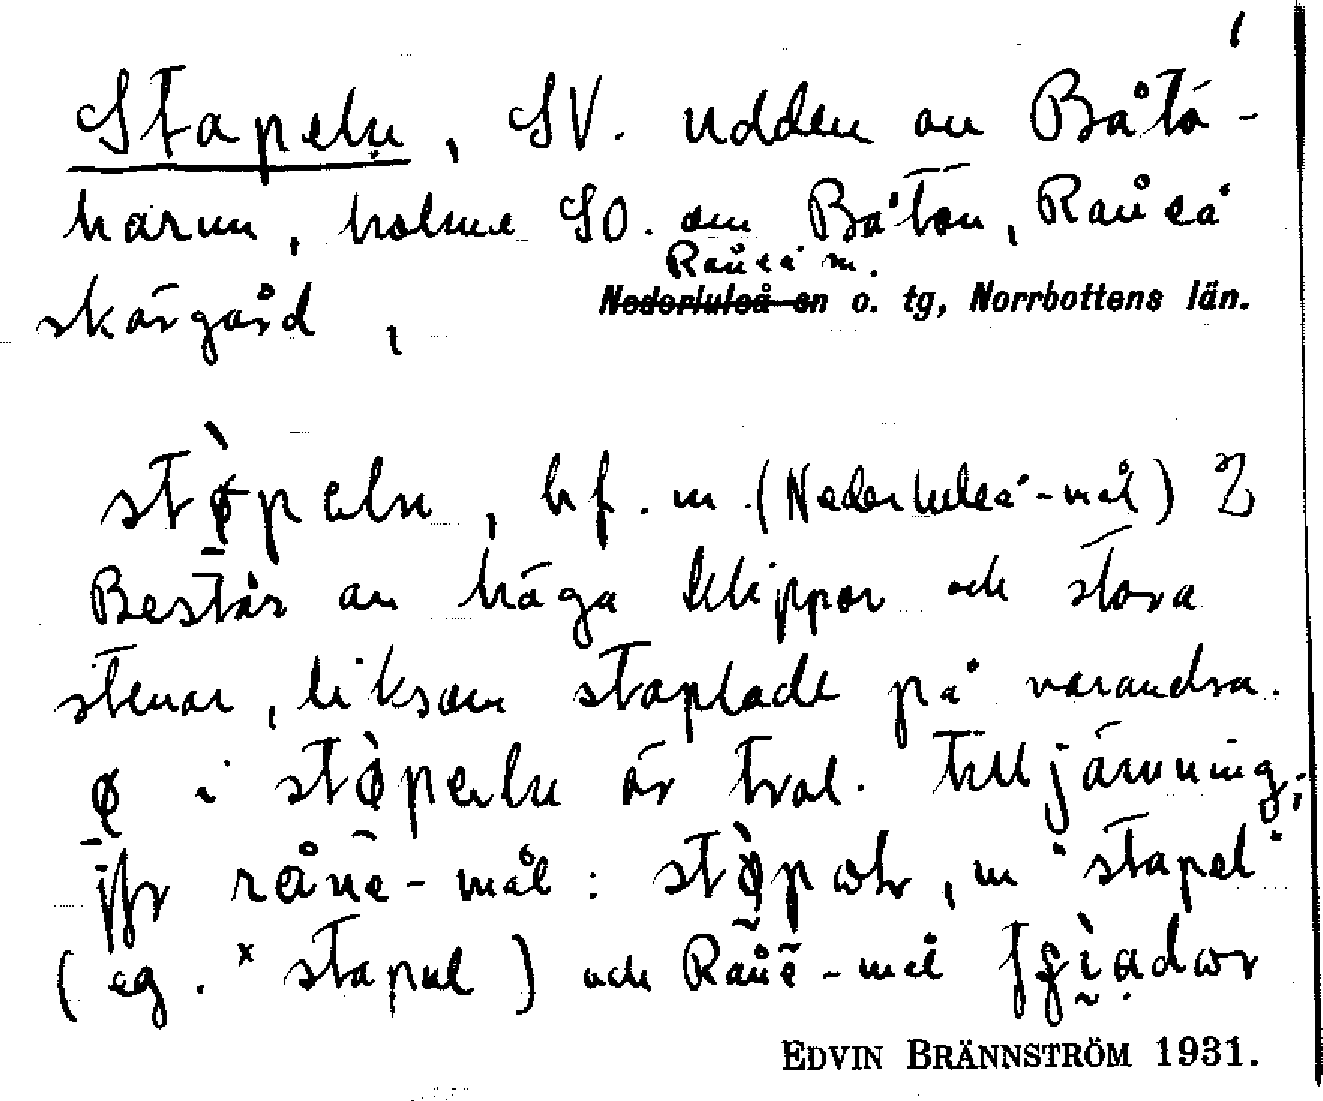 1
Stapeln, SV. udden av Båtö-
harun, holme SO. om Båtön, Råneå
Råneå sn.
skärgård, Nederluleå sn o. tg, Norrbottens län.
stø̀peln, bf. m. (Nederluleå-mål)
Består av höga klippor och stora
stenar, liksom staplade på varandra.
ø i stø̀peln är trol. tilljämning;
jfr råne-mål: stø̀pωlr, m "stapel"
(eg. *stapul) och Råne-mål
EDVIN BRÄNNSTRÖM 1931.